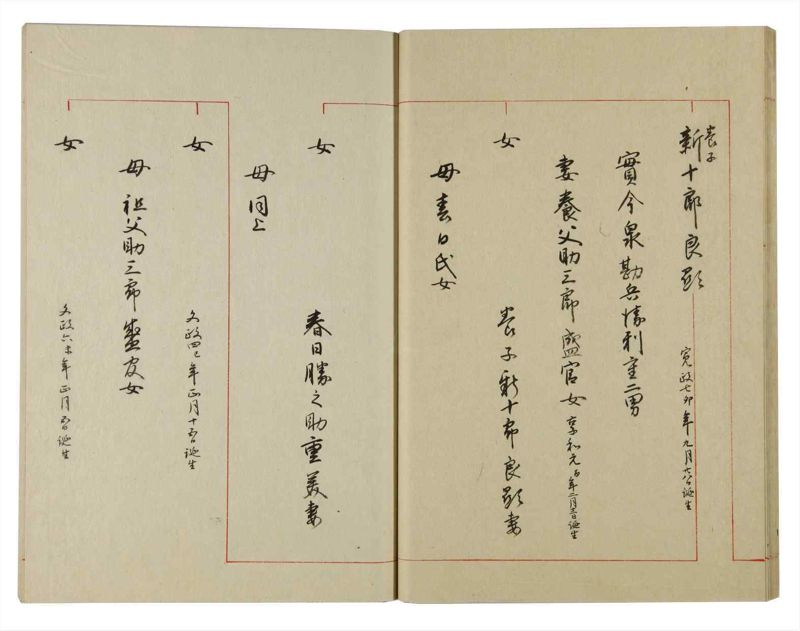 養子
新十郎良顕
寛政七卯年九月廿八日誕生
實今泉勘兵衛利重二男
妻養父助三郎盛官女
享和元酉年二月五日誕生
女
養子新十郎良顕妻
母春日氏女
女
春日勝之助重美妻
母同上
女
文政四巳年正月十五日誕生
母祖父助三郎盛官女
女
文政六未年正月五日誕生